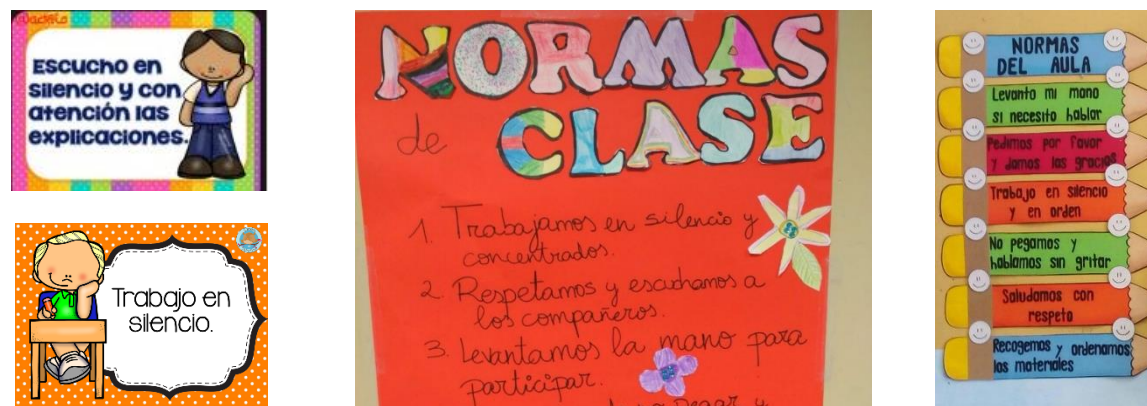 Escucho en
silencio y con
atención las
explicaciones.
Trabajo en
silencio.
NORMAS
de CLASE
1. Trabajamos en silencio y
concentrados.
2. Respetamos y escuchamos a
los compañeros.
3. Levantamos la mano para
participar.
pegar y
NORMAS
DEL AULA
Levanto mi mano
si necesito hablar
Pedimos por favor
y damos las gracias
Trabajo en silencio
y en orden
No pegamos y
hablamos sin gritar
Saludamos con
respeto
Recogemos y ordenamos
los materiales